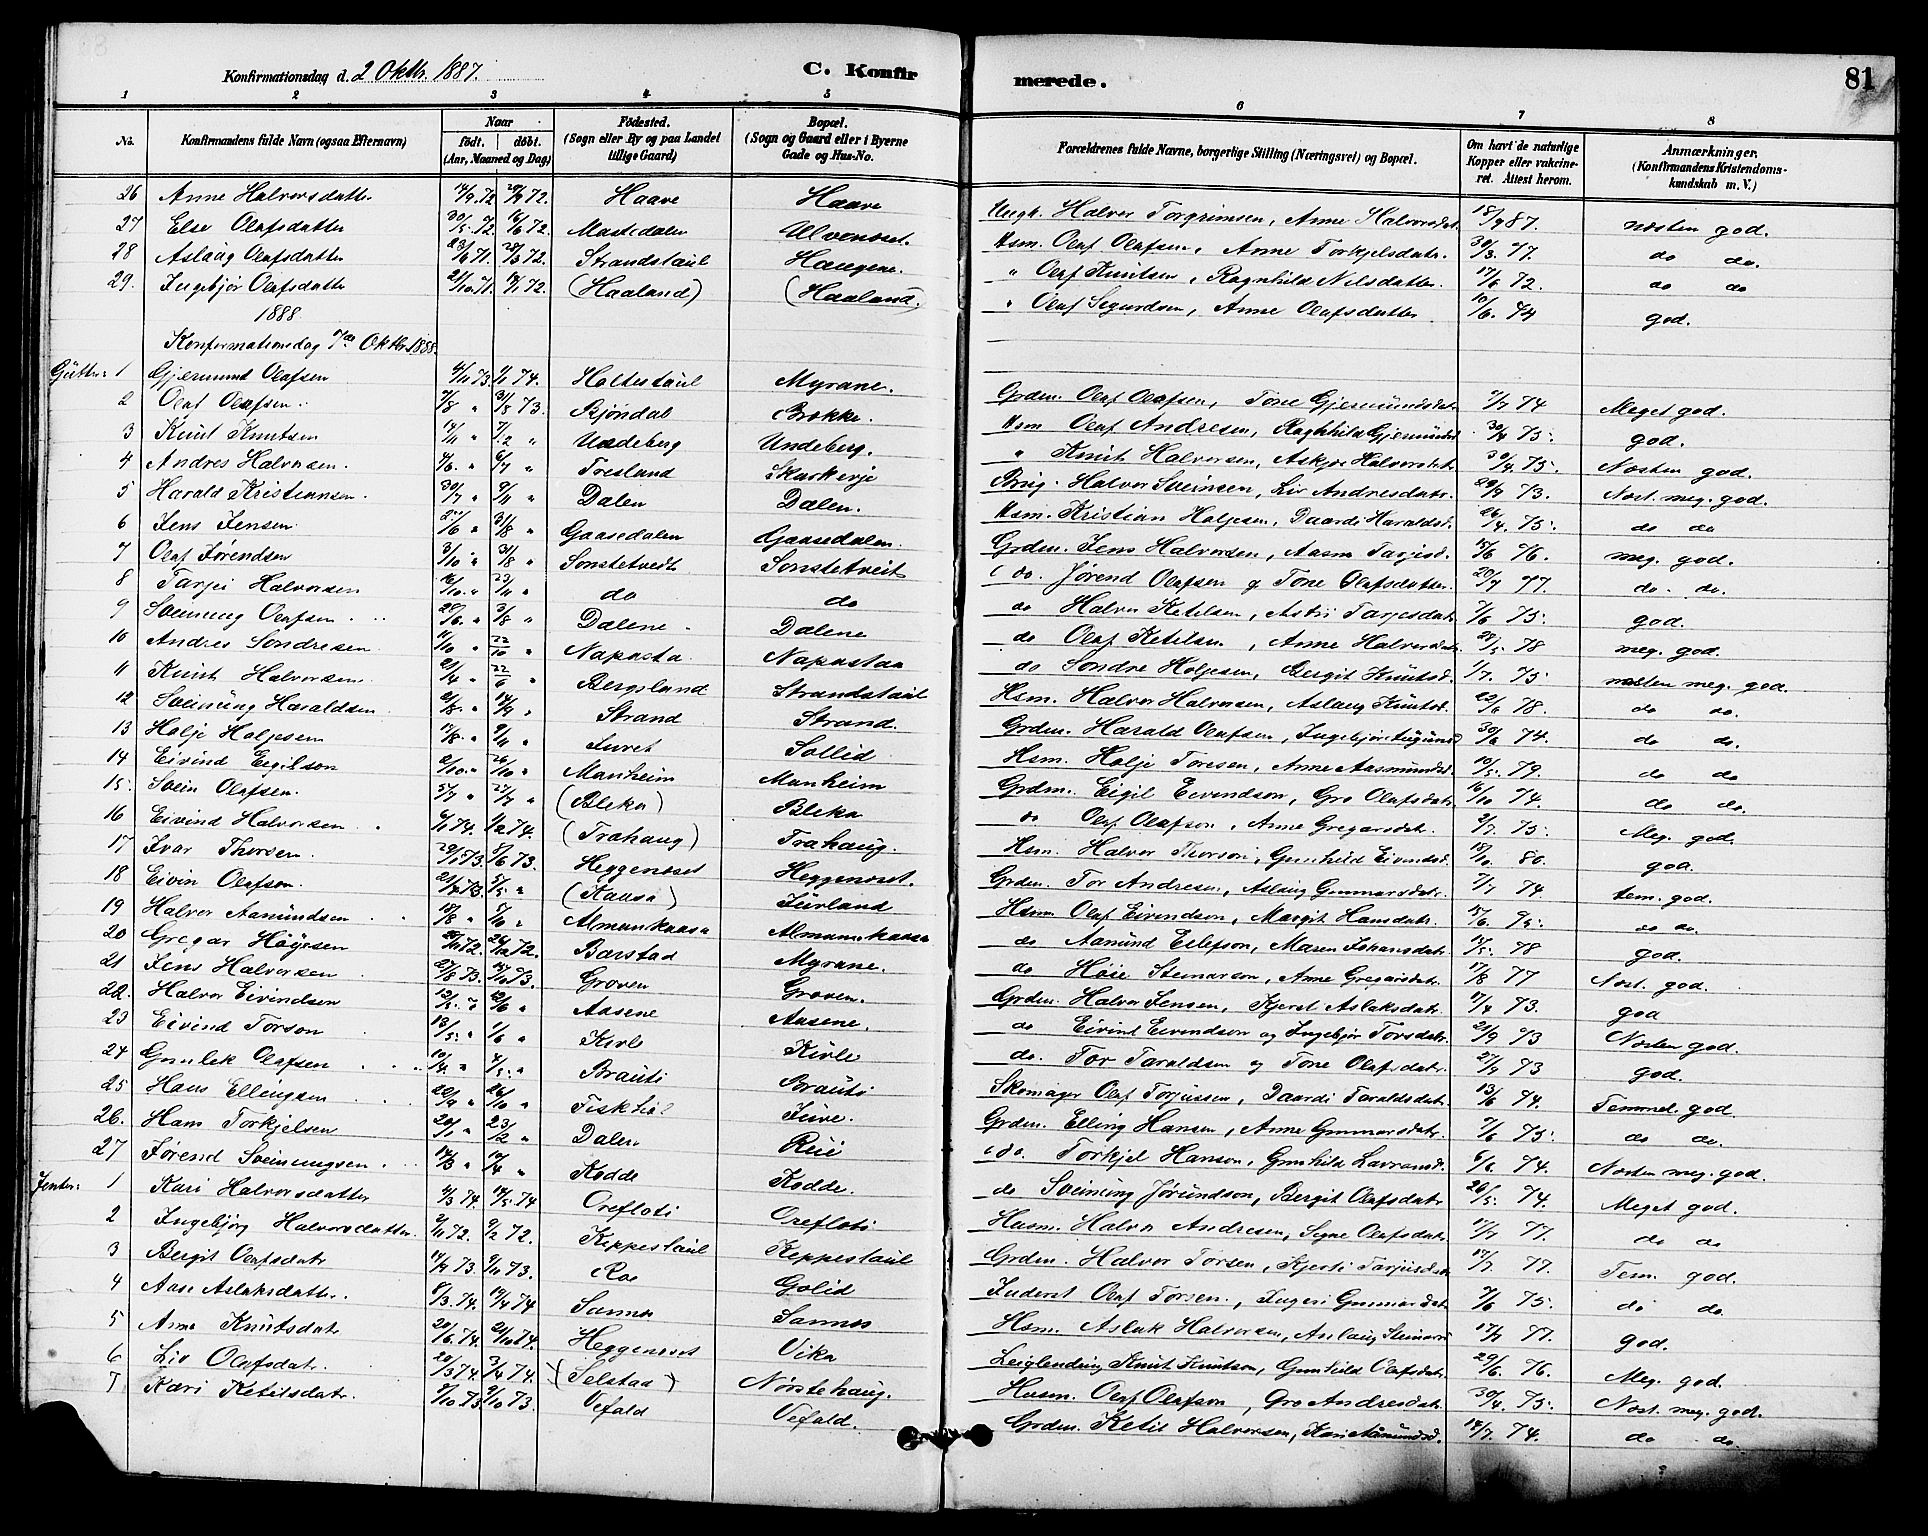 Konfirmationsdag d. 2 Oktbr. 1887. C. Konfirmerede. 81
1 2 3 4 5 6 7 8
No. Konfirmandens fulde Navn (ogsaa Efternavn) Naar født. døbt. (Aar, Maaned og Dag) Fødested. (Sogn eller By og paa Landet tillige Gaard) Bopæl. (Sogn og Gaard eller i Byerne Gade og Hus-No. Forældrenes fulde Navne, borgerlige Stilling (Næringsvei) og Bopæl. Om havt de naturlige Kopper eller vakcineret. Attest herom. Anmærkninger. (Konfirmandens Kristendomskundskab m. V.)
26 Anne Halvorsdatter 14/9 72 29/9 72. Haave Haave Ungk. Halvor Torgrimsen, Anne Halvorsdat. 18/9 87. næsten god.
27 Else Olafsdatter 30/5 72. 16/6 72. Mastedalen Ulvenøset. Hsm. Olaf Olafsen, Anne Torkjelsdatr. 30/3 77. do do.
28 Aslaug Olafsdatter 71. 72. Strandstaul Haugene. " Olaf Knutsen, Ragnhild Nilsdatter. 17/6 72. do do
29. Ingebjør Olafsdatter 21/10 71. 72. (Haaland) (Haaland.) " Olaf Sigurdsen, Anne Olafsdatter 10/6. 74 god.
1888
Konfirmationsdag 7de Oktbr. 1888.
Gutter: 1 Gjermund Olafsen 4/11 73. 1/1 74. Holtestaul Myrane. Grdm. Olaf Olafsen, Tone Gjermundsdat. 7/7 74 Meget god.
2 Olaf Olafsen. 7/8 " 31/8 73. Skjøndal Brokke. Hsm Olaf Andresen, Ragnhild Gjermunds 30/4 75. god.
3 Knut Knutsen 14/11 " 7/12 " Undeberg Undeberg. " Knut Halvorsen, Askjær Halvorsdat. 30/4. 75. Næsten god.
4 Andres Halvorsen. 4/6. " 6/7 " Tresland Skarkerje Brug. Halvor Sveinsen, Liv Andresdatr. 29/9 73. Næst. meg. god.
5 Harald Kristiansen. 30/7 " 9/11 " Dalen Dalen. Hsm. Kristian Holjesen, Daardi Haraldsd. 26/4. 75. do do
6 Jens Jensen. " 31/8 " Gaasedalen Gaasedalen. Grdm. Jens Halvorsen, Aasne Tarjeisd. 15/6 76. meg. god.
7 Olaf Jørendsen 3/10 " 31/8 " Sønstetvedt Sønstetveit do. Jørend Olafsen & Tone Olafsdatter. 20/7 77. do. do.
8 Tarjei Halvorsen 16/10. " 23/11 " do do do Halvor Ketilsen, Astri Tarjeisdatr. 7/6 75. god.
9 Sveinung Olafsen 28/6. " 3/8 " Dalene Dalene do Olaf Ketilsen, Anne Halvorsdatr. 28/5 78 meg. god.
10 Andres Sondresen. 11/10 " 22/10 " Napasta. Napastaa do Sondre Holjesen, Bergit Knutsd. 1/7. 75. næsten meg. god.
11 Knut Halvorsen 21/4 " 22/6 " Bergsland Strandstaul Hsm. Halvor Halvorsen, Aslaug Knutsd. 22/6 78. do do.
12 Sveinung Haraldsen 2/8 " 14/9 " Strand Strand. Grdm. Harald Olafsen, Ingebjør 30/6 74. do do.
13 Holje Holjesen 17/8. " 9/11 " Juvet Sollid Hsm. Holje Toresen, Anne Aasmundsd. 10/5. 79. do do
14 Eivind Eigilson 2/10 " 26/10 " Manheim Manheim Grdm. Eigil Eivendson, Gro Olafsdatr. 16/10 74. do do.
15. Svein Olafsen. 5/7 " 23/7 " (Bleka) Bleka do Olaf Olafson, Anne Gregarsdatr. 2/7. 75. Meg. god.
16 Eivind Halvorsen 6/1 74. 1/2 74. (Trahaug) Trahaug. Hsm. Halvor Thorson, Gunnhild Eivindsd. 10/10. 80. god.
17 Ivar Thorsen. 29/1 73. 8/6 73. Heggenøset Heggenøset. Grdm. Tor Andresen, Aslaug Gunnarsdatr. 7/7 74 tem. god.
18 Eivin Olafson. 73. 5/5. " (Kaasa) Juvland Hsm Olaf Eivendson, Margit Hansdatr. 15/6. 75. do do.
19 Halvor Aamundsen 10/8 " 5/10 " Almankaasa Almannkaasa do Aamund Ellefson, Maren Johansdatr. 17/5. 78 god.
20 Gregar Høyesen 72. 72. Barstad Myrane. do Høie Steinarson, Anne Gregarsdatr. 17/8 77 Næst. god.
21 Jens Halvorsen 27/8 73. 73. Groven Groven. Grdm. Halvor Jensen, Kjerst Aslaksdatr. 17/4 73. god
22. Halvor Eivindsen " " Aasene Aasene. do Eivind Eivendson og Ingebjør Torsdatr. 21/9 73 Næsten god.
23 Eivind Torson 13/5. " 1/6 " Kivle Kivle do. Tor Taraldsen og Tone Olafsdatr. 27/9 73 god.
24 Gunlek Olafsen 10/4. " 4/5. " Brauti Brauti Skomager Olaf Torjussen, Daardi Taraldsdatr. 13/6 74. Temmel. god.
25 Hans Ellingsen 22/9 " 26/10 " Fiskhøl Juve. Grdm. Elling Hansen, Anne Gunnarsdatr. 7/6 75. do do.
26. Hans Torkjelsen 20/1 " 23/2 " Dalen Reie do. Torkjel Hanson, Gunhild Lavransd. 6/6 74. Næsten meg. god.
27 Jørend Sveinungsen 14/3 " 10/4 " Kodde Kodde. do Sveinung Jørundson, Bergit Olafsdatr. 26/5. 74. Meget god.
Jenter: 1 Kari Halvorsdatter 4/3 74. 14/5. 74 Orefloti Orefloti Husm. Halvor Andresen, Signe Olafsdatr. 17/7 77. do do
2 Ingebjørg Halvorsdatter. 2/11 72. 9/2 72. Keppestaul Keppestaul Grdm. Halvor Torsen, Kjersti Tarjeisdatr. 17/7. 77. Tem. god.
3 Bergit Olafsdatr 14/9 73. 9/11 73. Roe Golid Inderst Olaf Torsen, Ingeri Gunnarsdatr. 7/6 75. do do
4 Aase Aslaksdatter. 8/3. 74. 19/4 74 Sanne Sannes Hsm. Aslak Halvorsen, Aslaug 17/7 77. god.
5 Anne Knutsdatr 20/6. 74. 74. Heggenøset Vika Leiglending Knut Knutson, Gunhild Olafsdatr. 29/6. 76. Meg. god.
6 Liv Olafsdatr. 20/3 74. 3/4 74. (Selstad) Nørstehaug. Husm. Olaf Olafson, Gro Andresdatr. 30/4. 75. Næst. meg. god.
7 Kari Ketilsdatr. 9/10 73. 9/10 73. Vefald Vefald. Grdm. Ketil Halvorsen, Kari Aamundsd. 14/7. 74. do do.